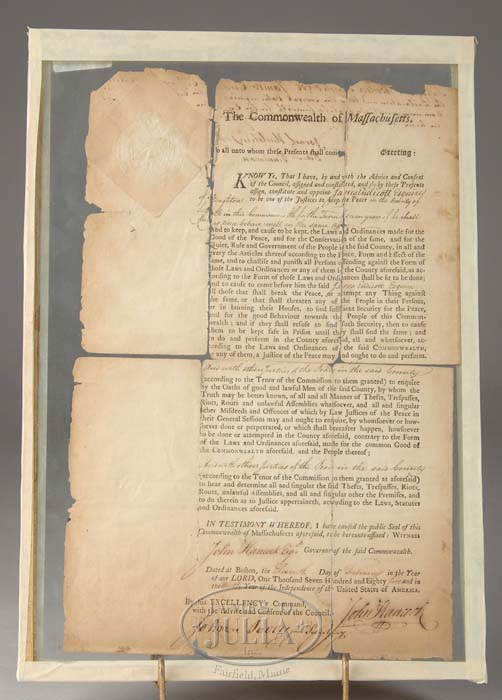 The Commonwealth of Massachusetts.
To all unto whom these Presents shall come, Greeting:
KNOW Ye, That I have, by and with the Advice and Consent
of the Council, assigned and constituted, and do by these Presents
assign, constitute and appoint James Endicott Esquire
of Stoughton
to be one of the Justices to keep the Peace in the County of
in this Commonwealth for the Term of seven years if he shall
so long behave well in the same
And to keep, and cause to be kept, the Laws and Ordinances made for the
Good of the Peace, and for the Conservation of the same, and for the
Quiet, Rule and Government of the People in the said County, in all and
every the Articles thereof according to the Force, Form and Effect of the
same, and to chastise and punish all Persons offending against the Form of
those Laws and Ordinances or any of them in the County aforesaid, as ac-
cording to the Form of those Laws and Ordinances shall be fit to be done;
and to cause to come before him the said James Endicott Esquire
all those that shall break the Peace, or attempt any Thing against
the same, or that shall threaten any of the People in their Persons,
or in burning their Houses, to find sufficient Security for the Peace,
and for the good Behaviour towards the People of this Common-
wealth; and if they shall refuse to find such Security, then to cause
them to be kept safe in Prison until they shall find the same; and
to do and perform in the County aforesaid, all and whatsoever, ac-
cording to the Laws and Ordinances of the said COMMONWEALTH,
or any of them, a Justice of the Peace may and ought to do and perform.
And with other Justices of the Peace in the said County
(according to the Tenor of the Commission to them granted) to enquire
by the Oaths of good and lawful Men of the said County, by whom the
Truth may be better known, of all and all Manner of Thefts, Trespasses,
Riots, Routs and unlawful Assemblies whatsoever, and all and singular
other Misdeeds and Offences of which by Law Justices of the Peace in
their General Sessions may and ought to enquire, by whomsoever or how-
soever done or perpetrated, or which shall hereafter happen, howsoever
to be done or attempted in the County aforesaid, contrary to the Form
of the Laws and Ordinances aforesaid, made for the common Good of
the COMMONWEALTH aforesaid, and the People thereof;
And with other Justices of the Peace in the said County
(according to the Tenor of the Commission to them granted as aforesaid)
to hear and determine all and singular the said Thefts, Trespasses, Riots,
Routs, unlawful Assemblies, and all and singular other the Premises, and
to do therein as to Justice appertaineth, according to the Laws, Statutes
and Ordinances aforesaid.
IN TESTIMONY WHEREOF, I have caused the public Seal of this
Commonwealth of Massachusetts aforesaid, to be hereunto affixed: WITNESS
John Hancock Esqr. Governor of the said Commonwealth.
Dated at Boston, the Day of in the Year
of our LORD, One Thousand Seven Hundred and Eighty and in
the Year of the Independence of the UNITED STATES OF AMERICA.
By his EXCELLENCY's Command,
with the Advice and Consent of the Council.
John Hancock
John Avery
JULIA
Inc.
Fairfield, Maine